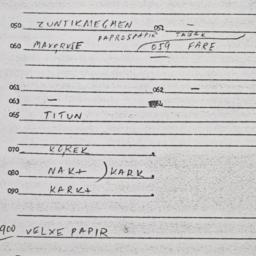 050 ZUNTIKMEGMEN 051 —
PAPROSPAPIR TABAK
060 MAKORKIE 059 FARE
061 062 —
063 —
065 TITUN
070 KOREK
080 NAK+ ) KARK
090 KARK+
900 VELXE PAPIR